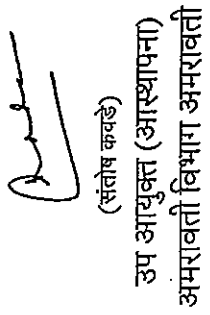 (संतोष कवडे)
उप आयुक्त (आस्थापना)
अमरावती विभाग अमरावती